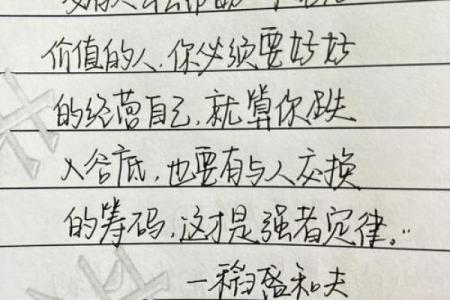 价值的人,你必须要好好
的经营自己,就算你跌
入谷底,也要有与人交换
的筹码,这才是强者定律。..
—稻盛和夫